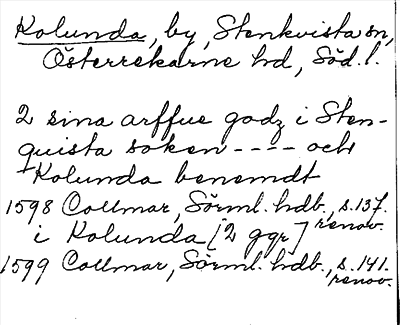 Kolunda, by, Stenkvista sn,
Österrekarne hd, Söd. l.
2 sina arffue godz i Sten-
quista soken ---- och
Kolunda benemdt
1598 Collmar, Sörml. hdb., s. 137.
renov.
i Kolunda [2 ggr]
1599 Collmar, Sörml. hdb., s. 141.
renov.